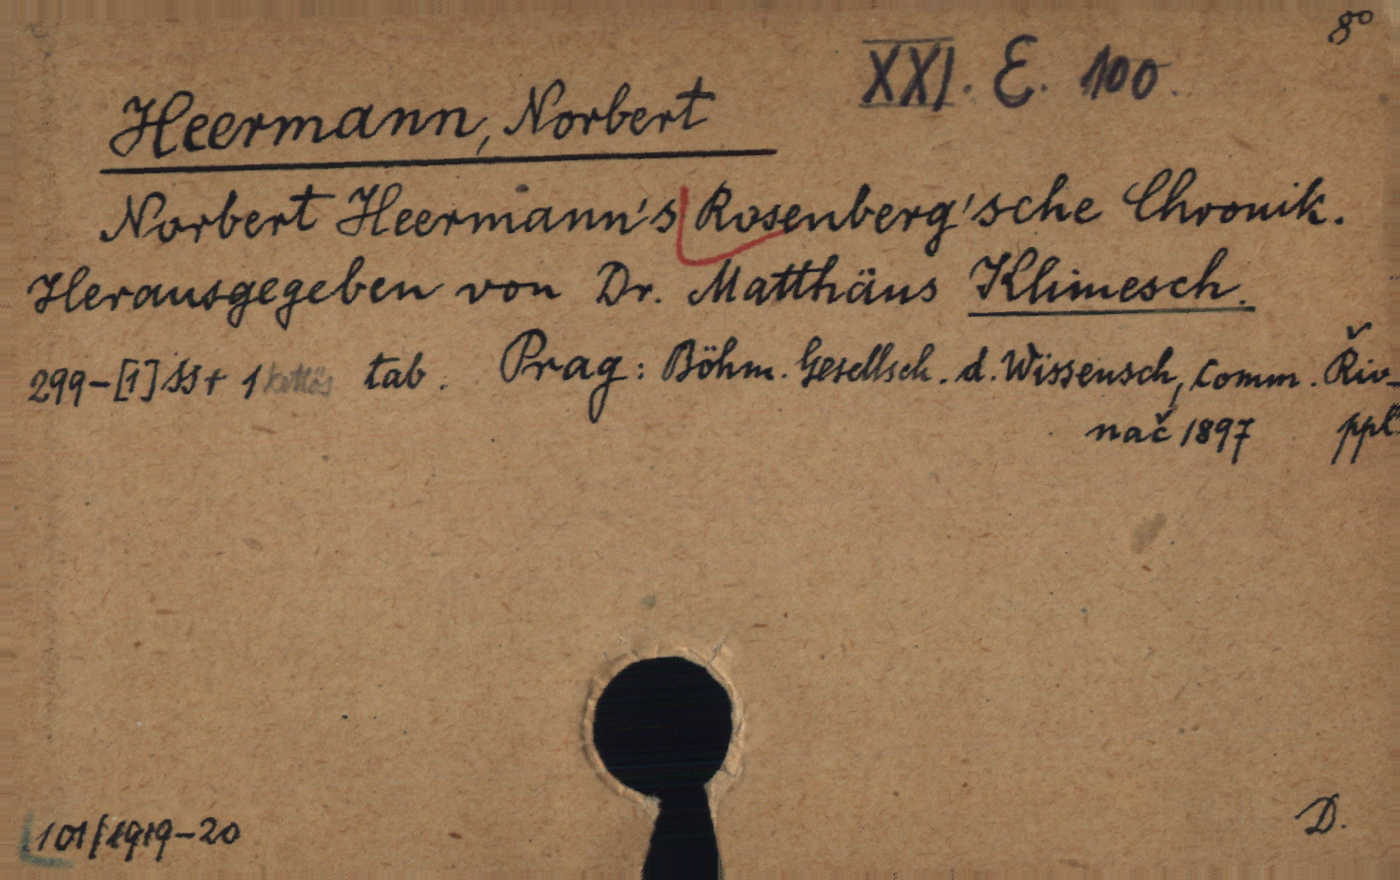 8°
XXI. E. 100.
Heermann, Norbert
Norbert Heermann's Rosenberg'sche Chronik.
Herausgegeben von Dr. Matthäus Klimesch.
299-[1] SS + 1 kettős tab. Prag: Böhm. Gesellsch. d. Wissensch, Comm. Řiv-
nač 1897 ppl
101/1919-20
D.